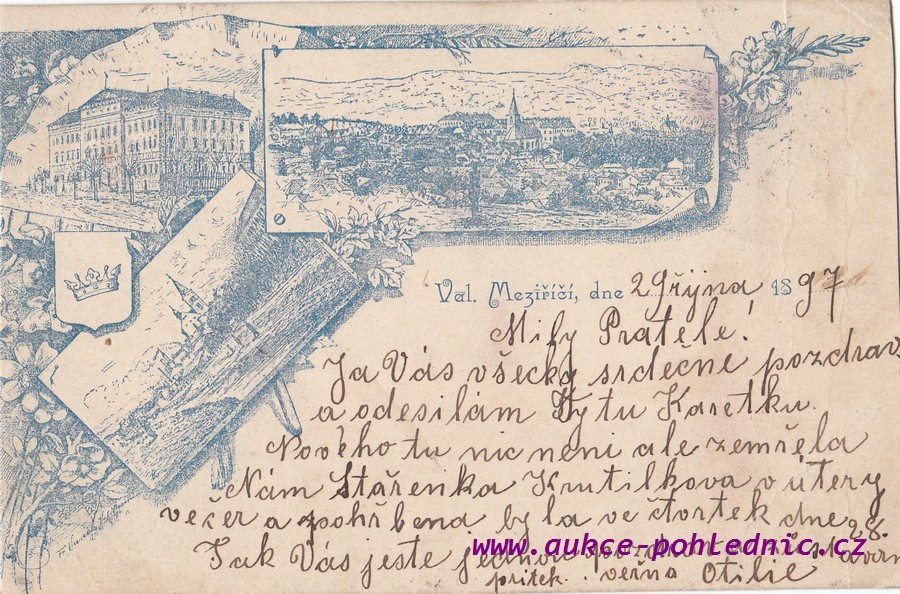 Val. Meziříčí, dne 29 října 1897
Mily Pratelé!
Ja Vás všecky srdecne pozdrav
a odesilám Vy tu Karetku.
Nového tu nic neni ale zemřela
Nám Stařenka Krutilkova v útery
večer a pohřbena byla ve čtvrtek dne 28.
Tak Vás jeste jednou
pritek. veřna Otilie
www.aukce-pohlednic.cz